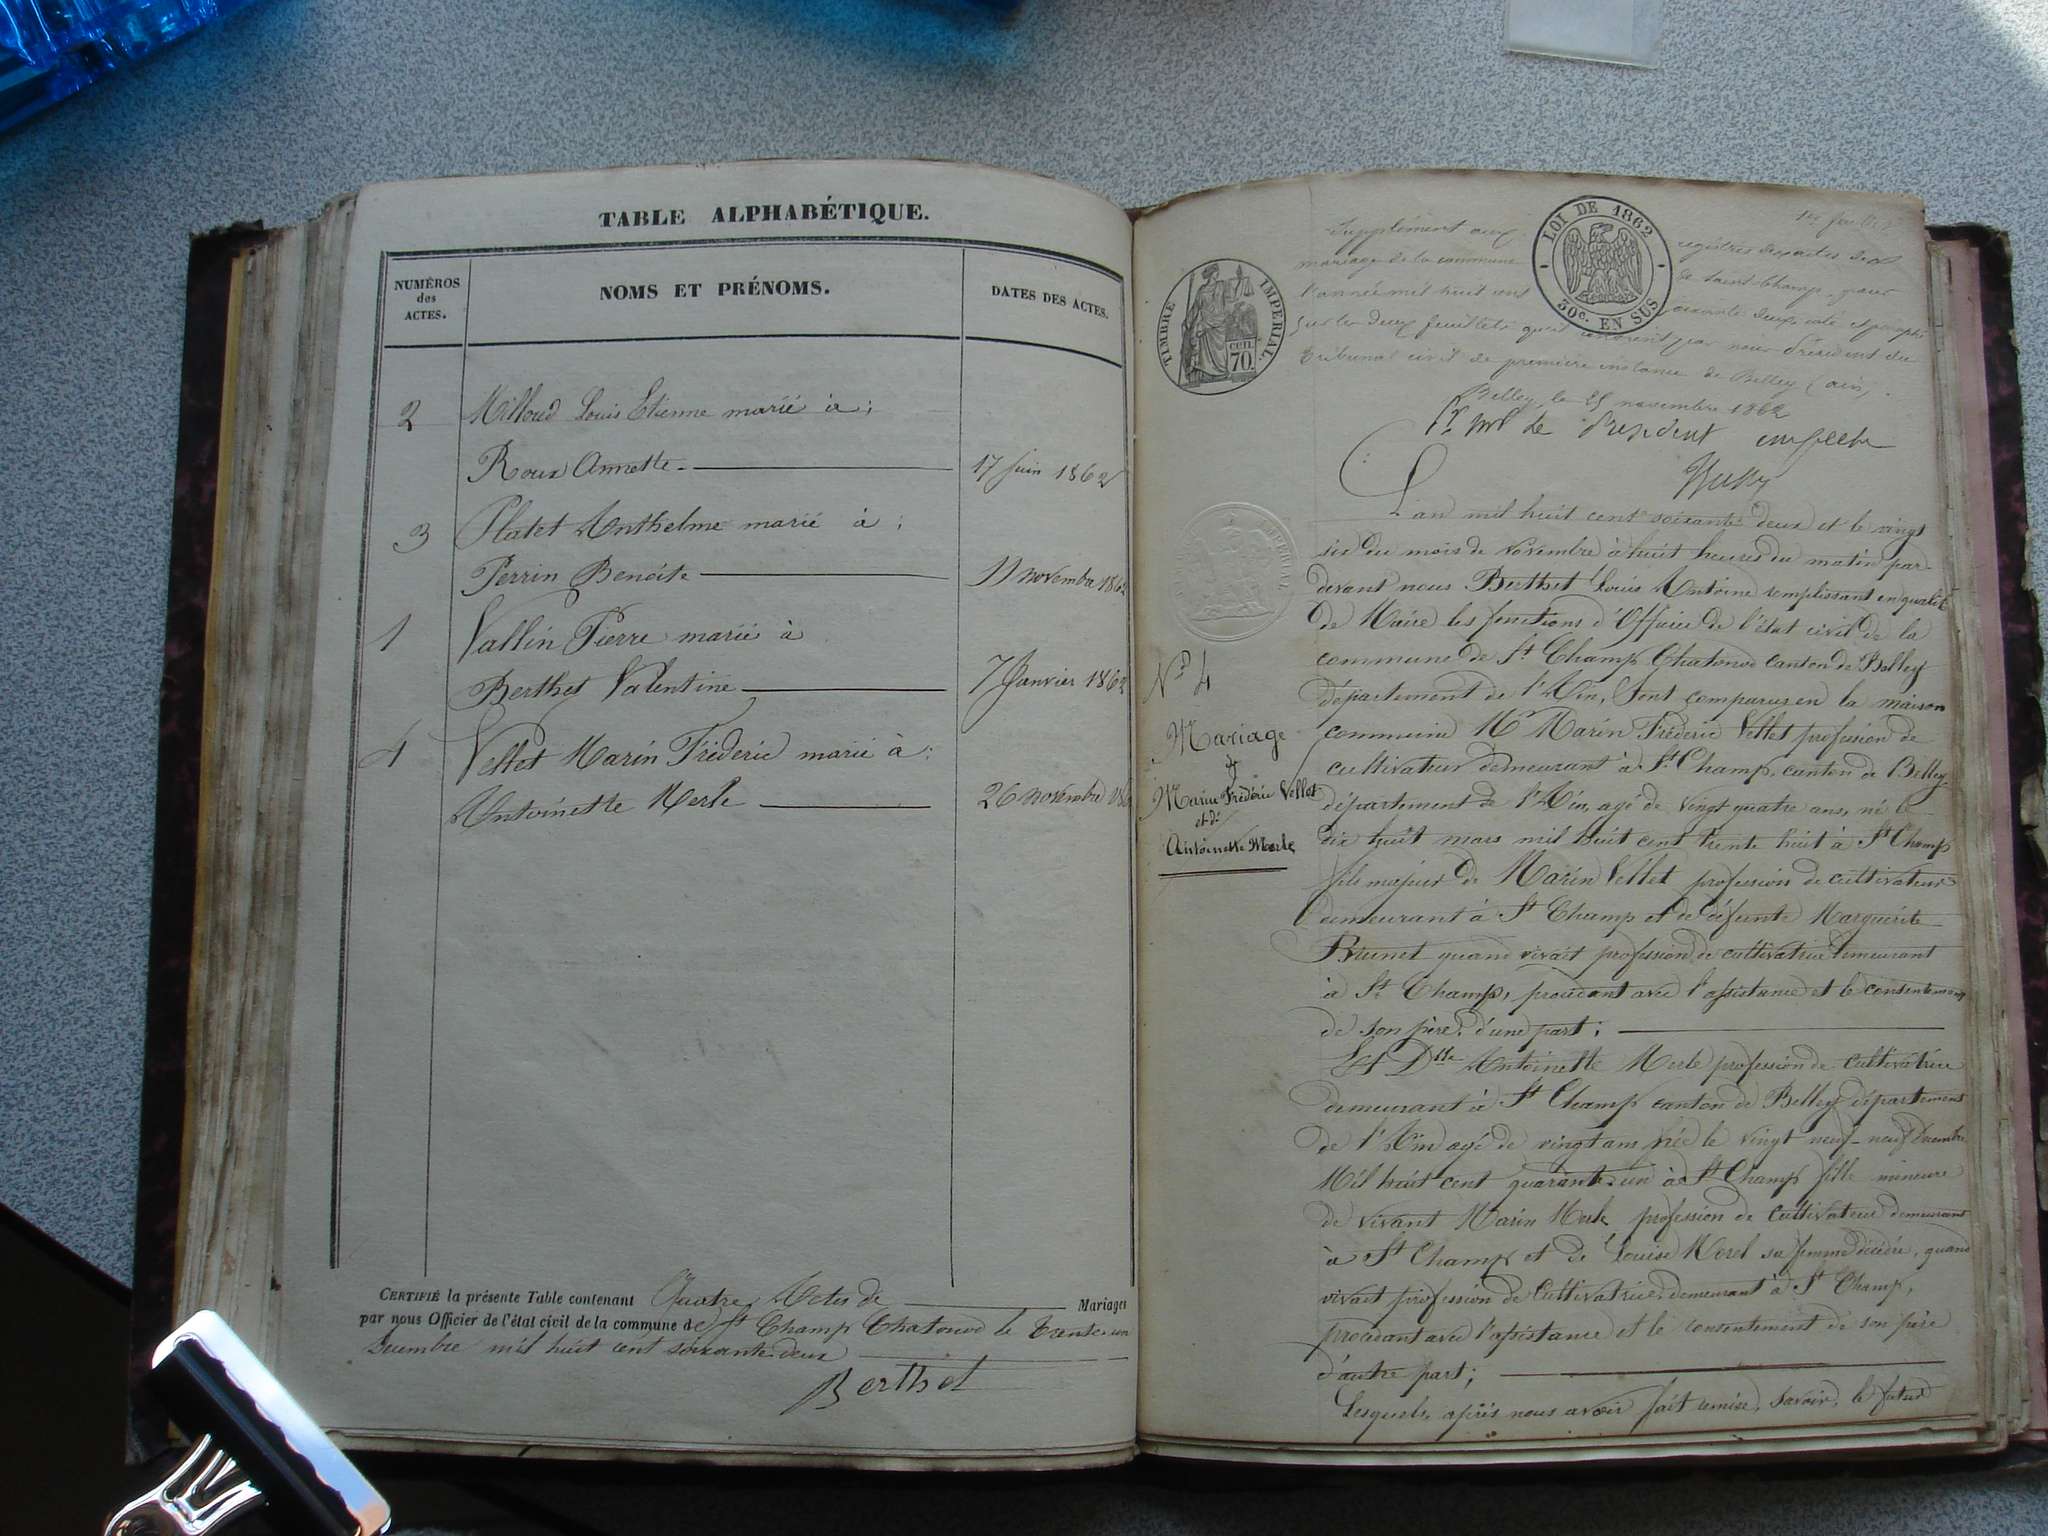 TABLE ALPHABÉTIQUE.
NUMÉROS des ACTES.
NOMS ET PRÉNOMS.
DATES DES ACTES.
2 Milloud Louis Etienne marié à :
Roux Annette 17 Juin 1862
3 Platet Anthelme marié à :
Perrin Benoite 11 novembre 1862
1 Vallin Pierre marié à
Berthet Valentine 7 Janvier 1862
4 Vellet Marin Frédéric marié à :
Antoinette Merle 26 novembre 186
CERTIFIÉ la présente Table contenant Quatre Actes de Mariages
par nous Officier de l'état civil de la commune de St Champ Chatonod le trente un
Décembre mil huit cent soixante deux
Berthet
1er feuillet
Supplément aux registres des actes de
mariage de la commune de Saint-Champ pour
l'année mil huit cent soixante deux, coté et paraphé
sur les deux feuillets par nous Président du
tribunal civil de première instance de Belley (ain),
Belley, le 25 novembre 1862
Pr Mr le Président empêché
LOI DE 1862
30c. EN SUS
TIMBRE IMPÉRIAL
CEN. 70.
L'an mil huit cent soixante deux et le vingt
six du mois de Novembre à huit heures du matin par-
devant nous Berthet Louis Antoine remplissant en qualité
de Maire les fonctions d'Officier de l'état civil de la
commune de St Champ Chatonod canton de Belley
département de l'Ain, Sont comparus en la maison
commune Mr Marin Frédéric Vellet profession de
cultivateur demeurant à St Champ, canton de Belley
département de l'Ain, agé de vingt quatre ans, né le
dix huit mars mil huit cent trente huit à St Champ
fils majeur de Marin Vellet profession de cultivateur
demeurant à St Champ et de défunte Marguerite
Brunet quand vivait profession de cultivatrice demeurant
à St Champ, procédant avec l'assistance et le consentement
de son père, d'une part ;
Et Dlle Antoinette Merle profession de cultivatrice
demeurant à St Champ canton de Belley département
de l'Ain agé de vingt ans née le vingt neuf Décembre
Mil huit cent quarante-un à St Champ fille mineure
de vivant Marin Merle profession de cultivateur demeurant
à St Champ et de Louise Morel sa femme décédée, quand
vivait profession de Cultivatrice, demeurant à St Champ,
procédant avec l'assistance et le consentement de son père
d'autre part ;
Lesquels, après nous avoir fait remise, savoir, le futur
No 4
Mariage
de
Marin Frédéric Vellet
et de
Antoinette Merle